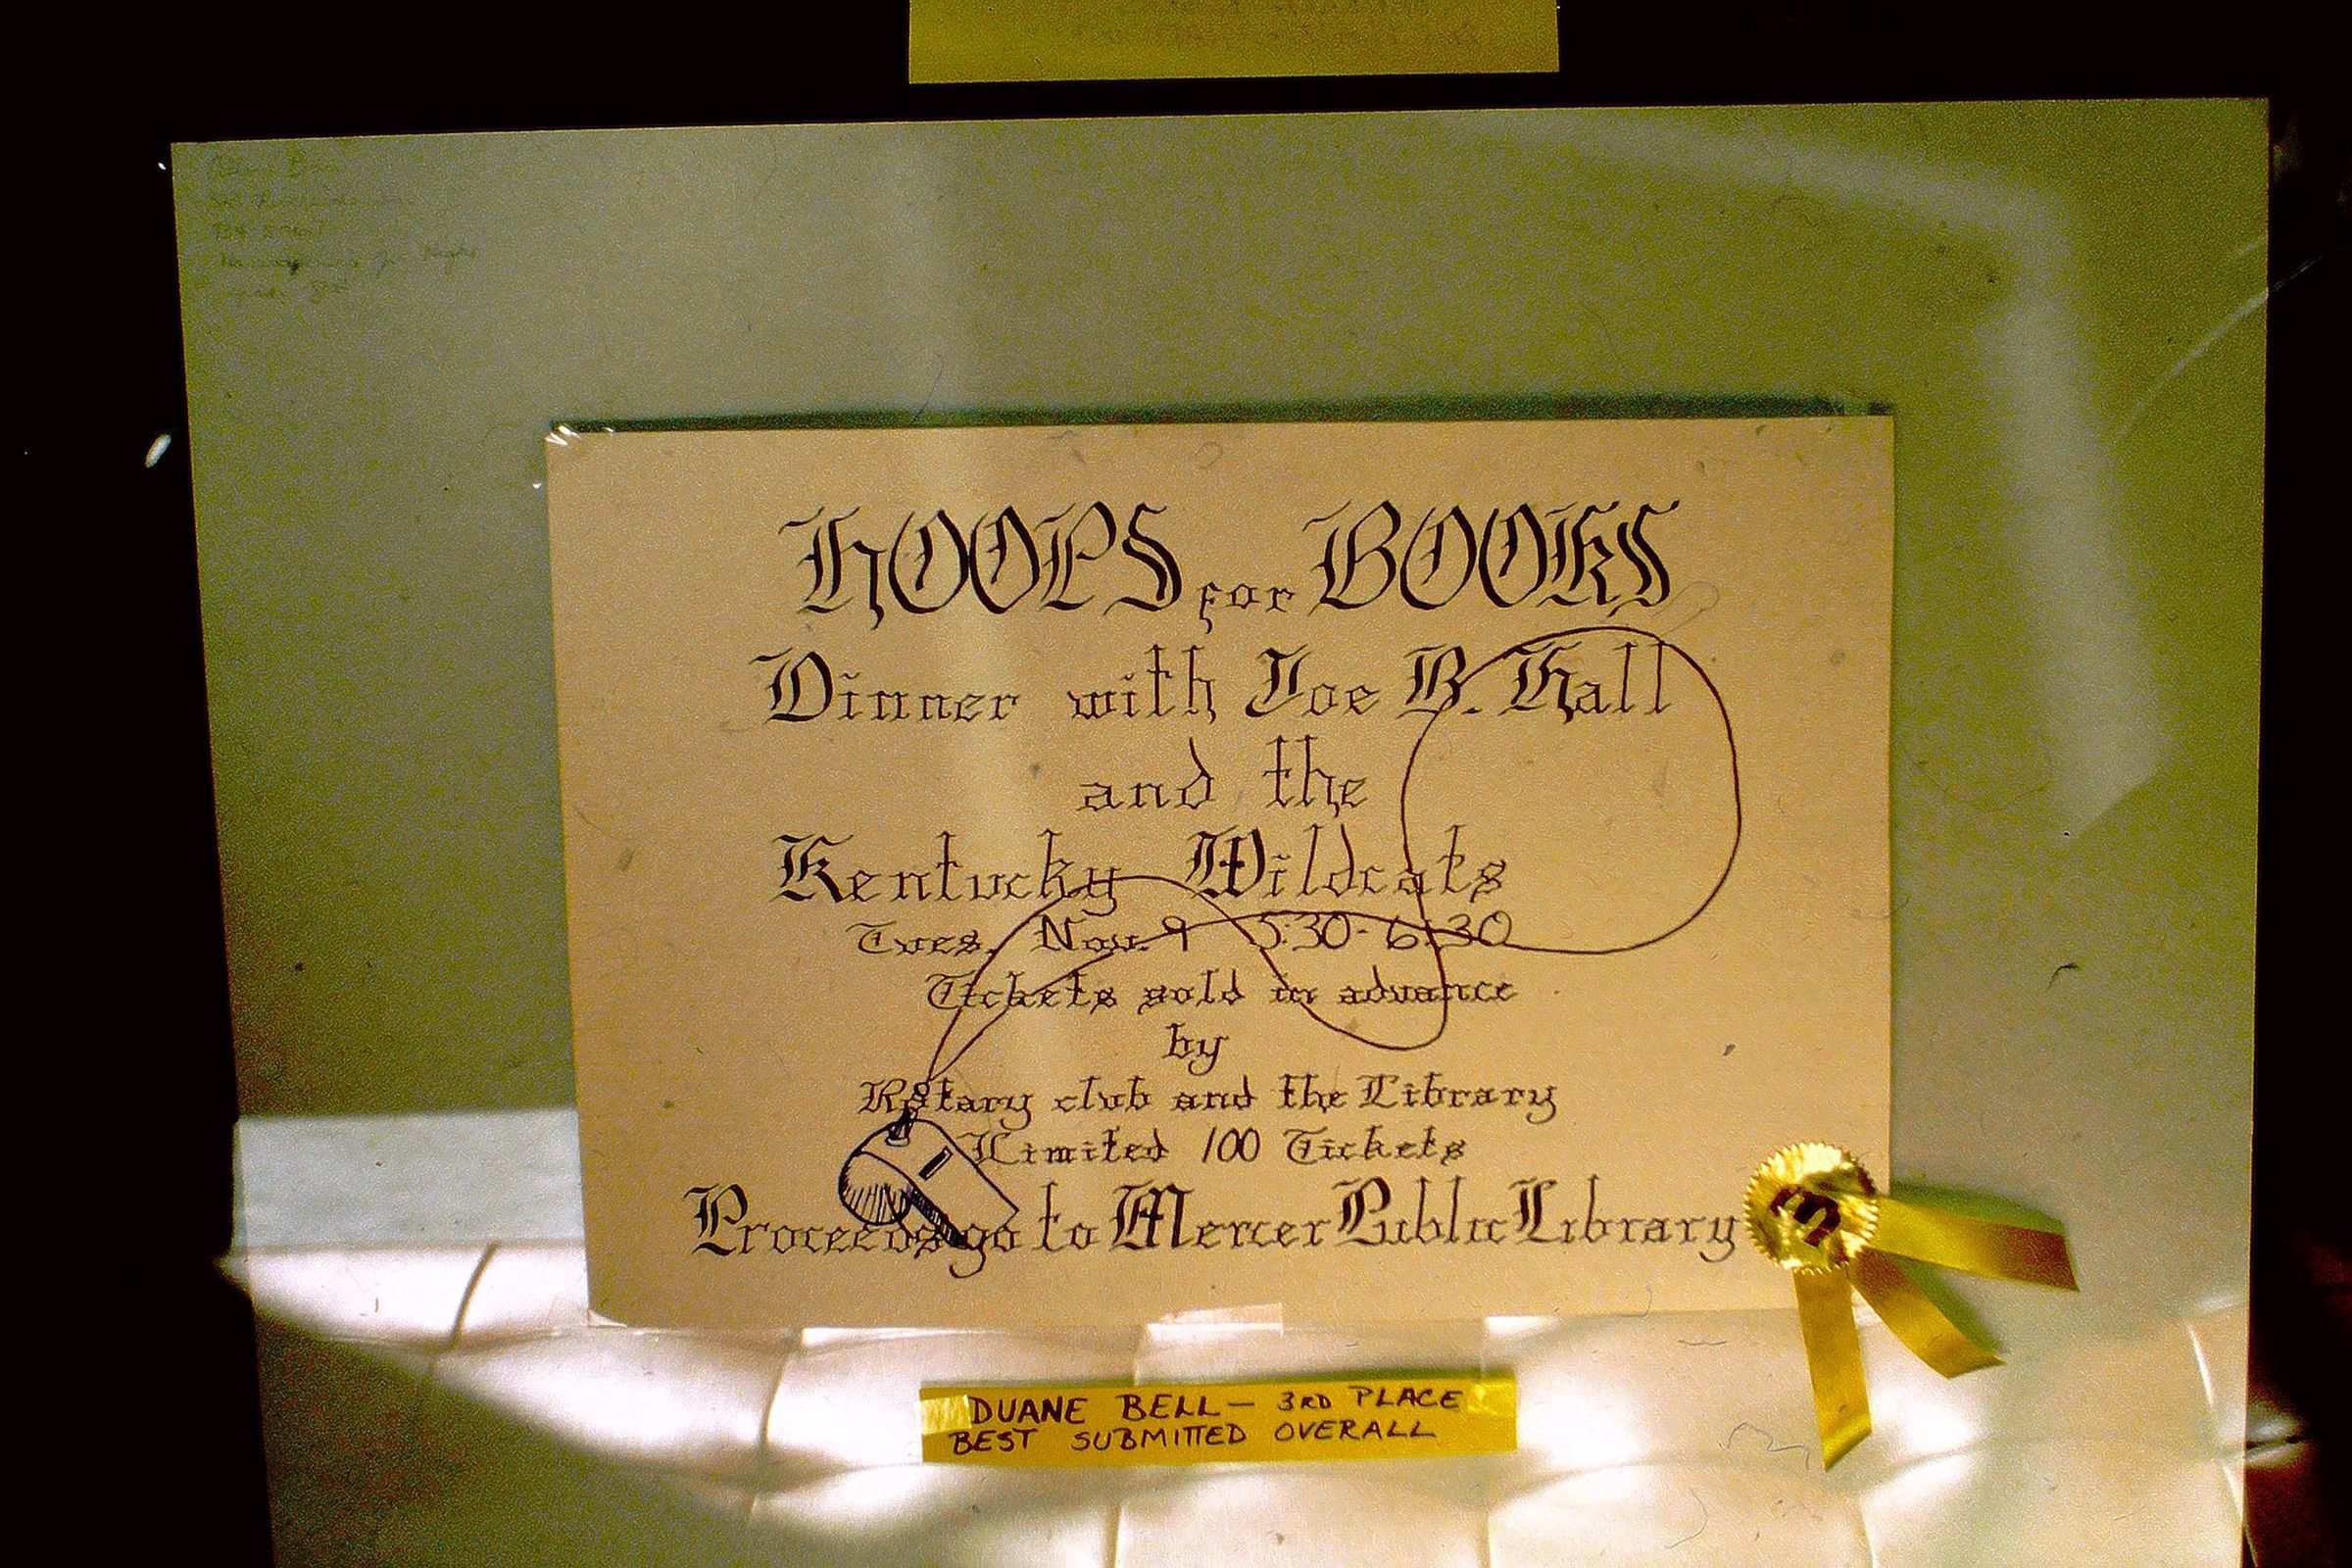 HOOPS for BOOKS
Dinner with Joe B. Hall
and the
Kentucky Wildcats
Tues. Nov. 9 5:30-6:30
Tickets sold in advance
by
Rotary club and the Library
Limited 100 Tickets
Proceeds go to Mercer Public Library
3
DUANE BELL — 3RD PLACE
BEST SUBMITTED OVERALL